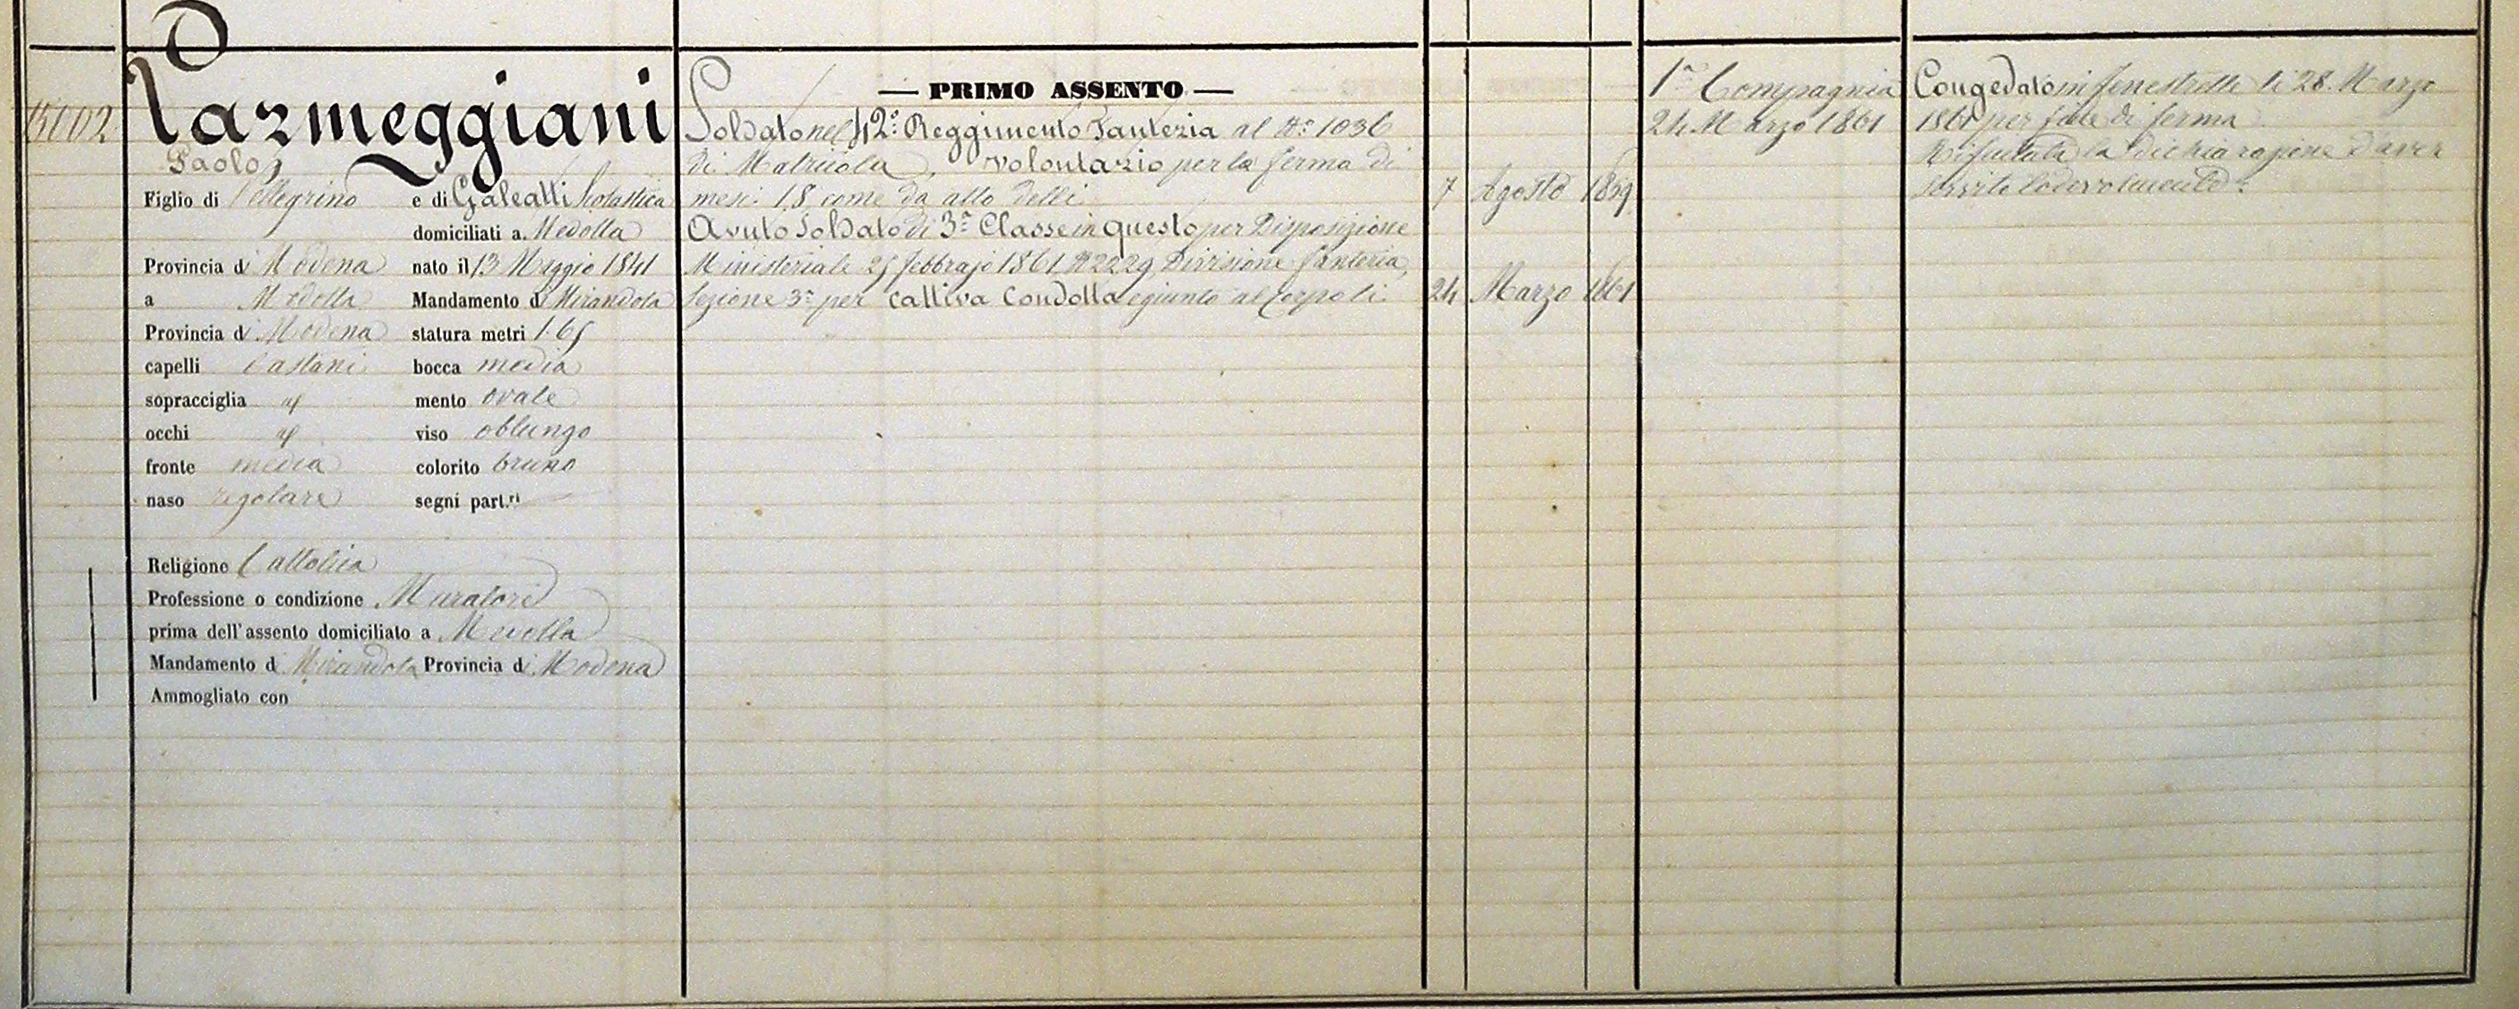 15002
Parmeggiani
Paolo
Figlio di Pellegrino e di Galeatti Scolastica
domiciliati a Medolla
Provincia di Modena nato il 13 Maggio 1841
a Medolla Mandamento di Mirandola
Provincia di Modena statura metri 1.65
capelli Castani bocca media
sopracciglia mento ovale
occhi viso oblungo
fronte media colorito bruno
naso regolare segni part.ri
Religione Cattolica
Professione o condizione Muratore
prima dell'assento domiciliato a Medolla
Mandamento di Mirandola Provincia di Modena
Ammogliato con
— PRIMO ASSENTO —
Soldato nel 42º Reggimento Fanteria al Nº 1036
di Matricola, volontario per la ferma di
mesi 18 come da atto delli 7 Agosto 1859
Avuto Soldato di 3ª Classe in questo per Disposizione
Ministeriale 25 febbrajo 1861 Nº 2229, Divisione fanteria,
Sezione 3ª per cattiva Condotta e giunto al Corpo li 24 Marzo 1861
1ª Compagnia
24 Marzo 1861
Congedato in fenestrelle li 28 Marzo
1861 per fine di ferma
Rifiutata la dichiarazione d'aver
servito lodevolmente